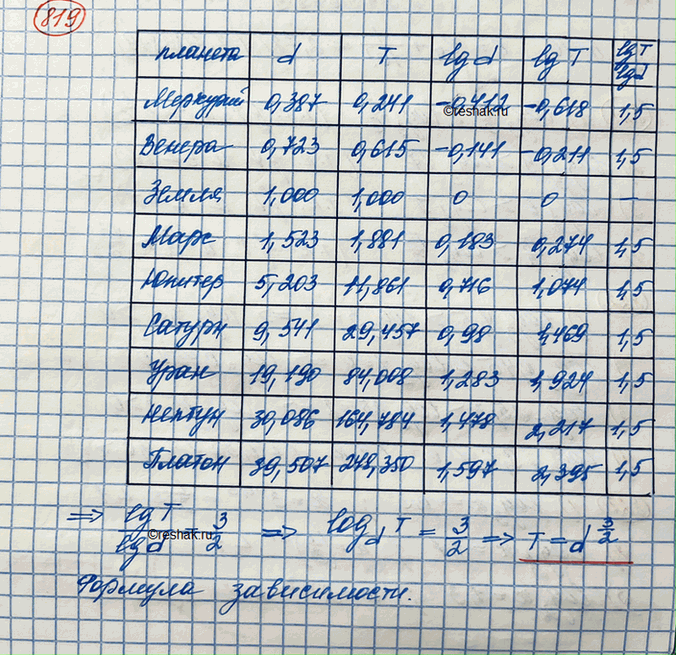 819
планета d T lg d lg T lg T / lg d
Меркурий 0,387 0,241 -0,412 -0,618 1,5
©reshak.ru
Венера 0,723 0,615 -0,141 -0,211 1,5
Земля 1,000 1,000 0 0 —
Марс 1,523 1,881 0,183 0,274 1,5
Юпитер 5,203 11,861 0,716 1,074 1,5
Сатурн 9,541 29,457 0,98 1,469 1,5
Уран 19,190 84,008 1,283 1,924 1,5
Нептун 30,086 164,784 1,478 2,217 1,5
Платон 39,507 248,350 1,597 2,395 1,5
=> lg T / lg d = 3/2 => log_d T = 3/2 => T = d^(3/2)
©reshak.ru
Формула зависимости.